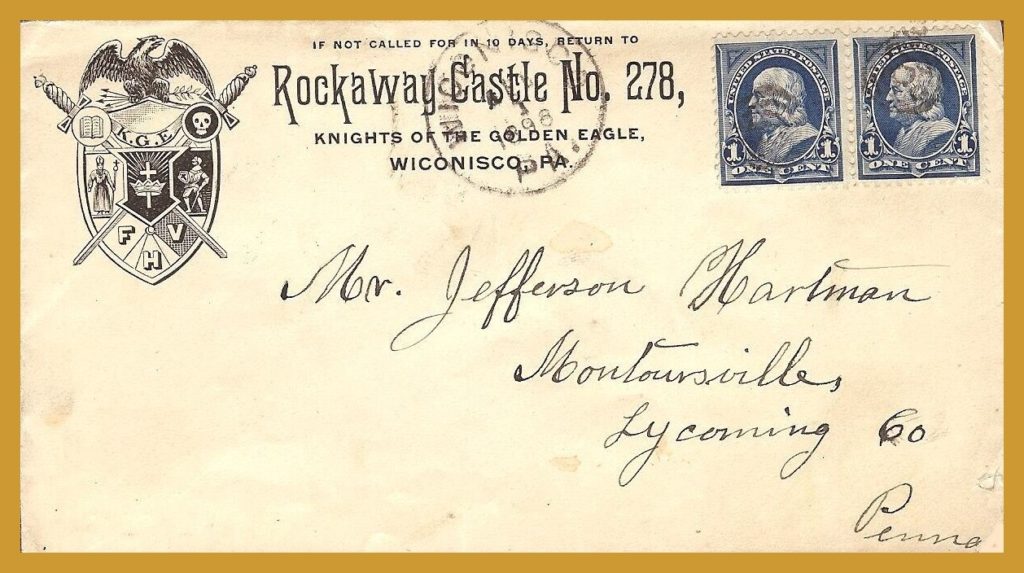 IF NOT CALLED FOR IN 10 DAYS, RETURN TO
Rockaway Castle No. 278,
KNIGHTS OF THE GOLDEN EAGLE,
WICONISCO, PA.
K.G.E
F H V
WICONISCO
1898
PA.
UNITED STATES POSTAGE
1 ONE CENT 1
UNITED STATES POSTAGE
1 ONE CENT 1
Mr. Jefferson Hartman
Montoursville,
Lycoming Co
Penna